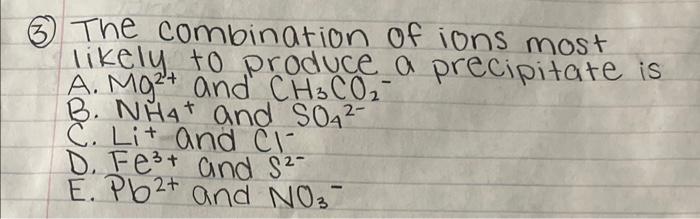 ③ The combination of ions most
likely to produce a precipitate is
A. Mg²⁺ and CH₃CO₂⁻
B. NH₄⁺ and SO₄²⁻
C. Li⁺ and Cl⁻
D. Fe³⁺ and S²⁻
E. Pb²⁺ and NO₃⁻